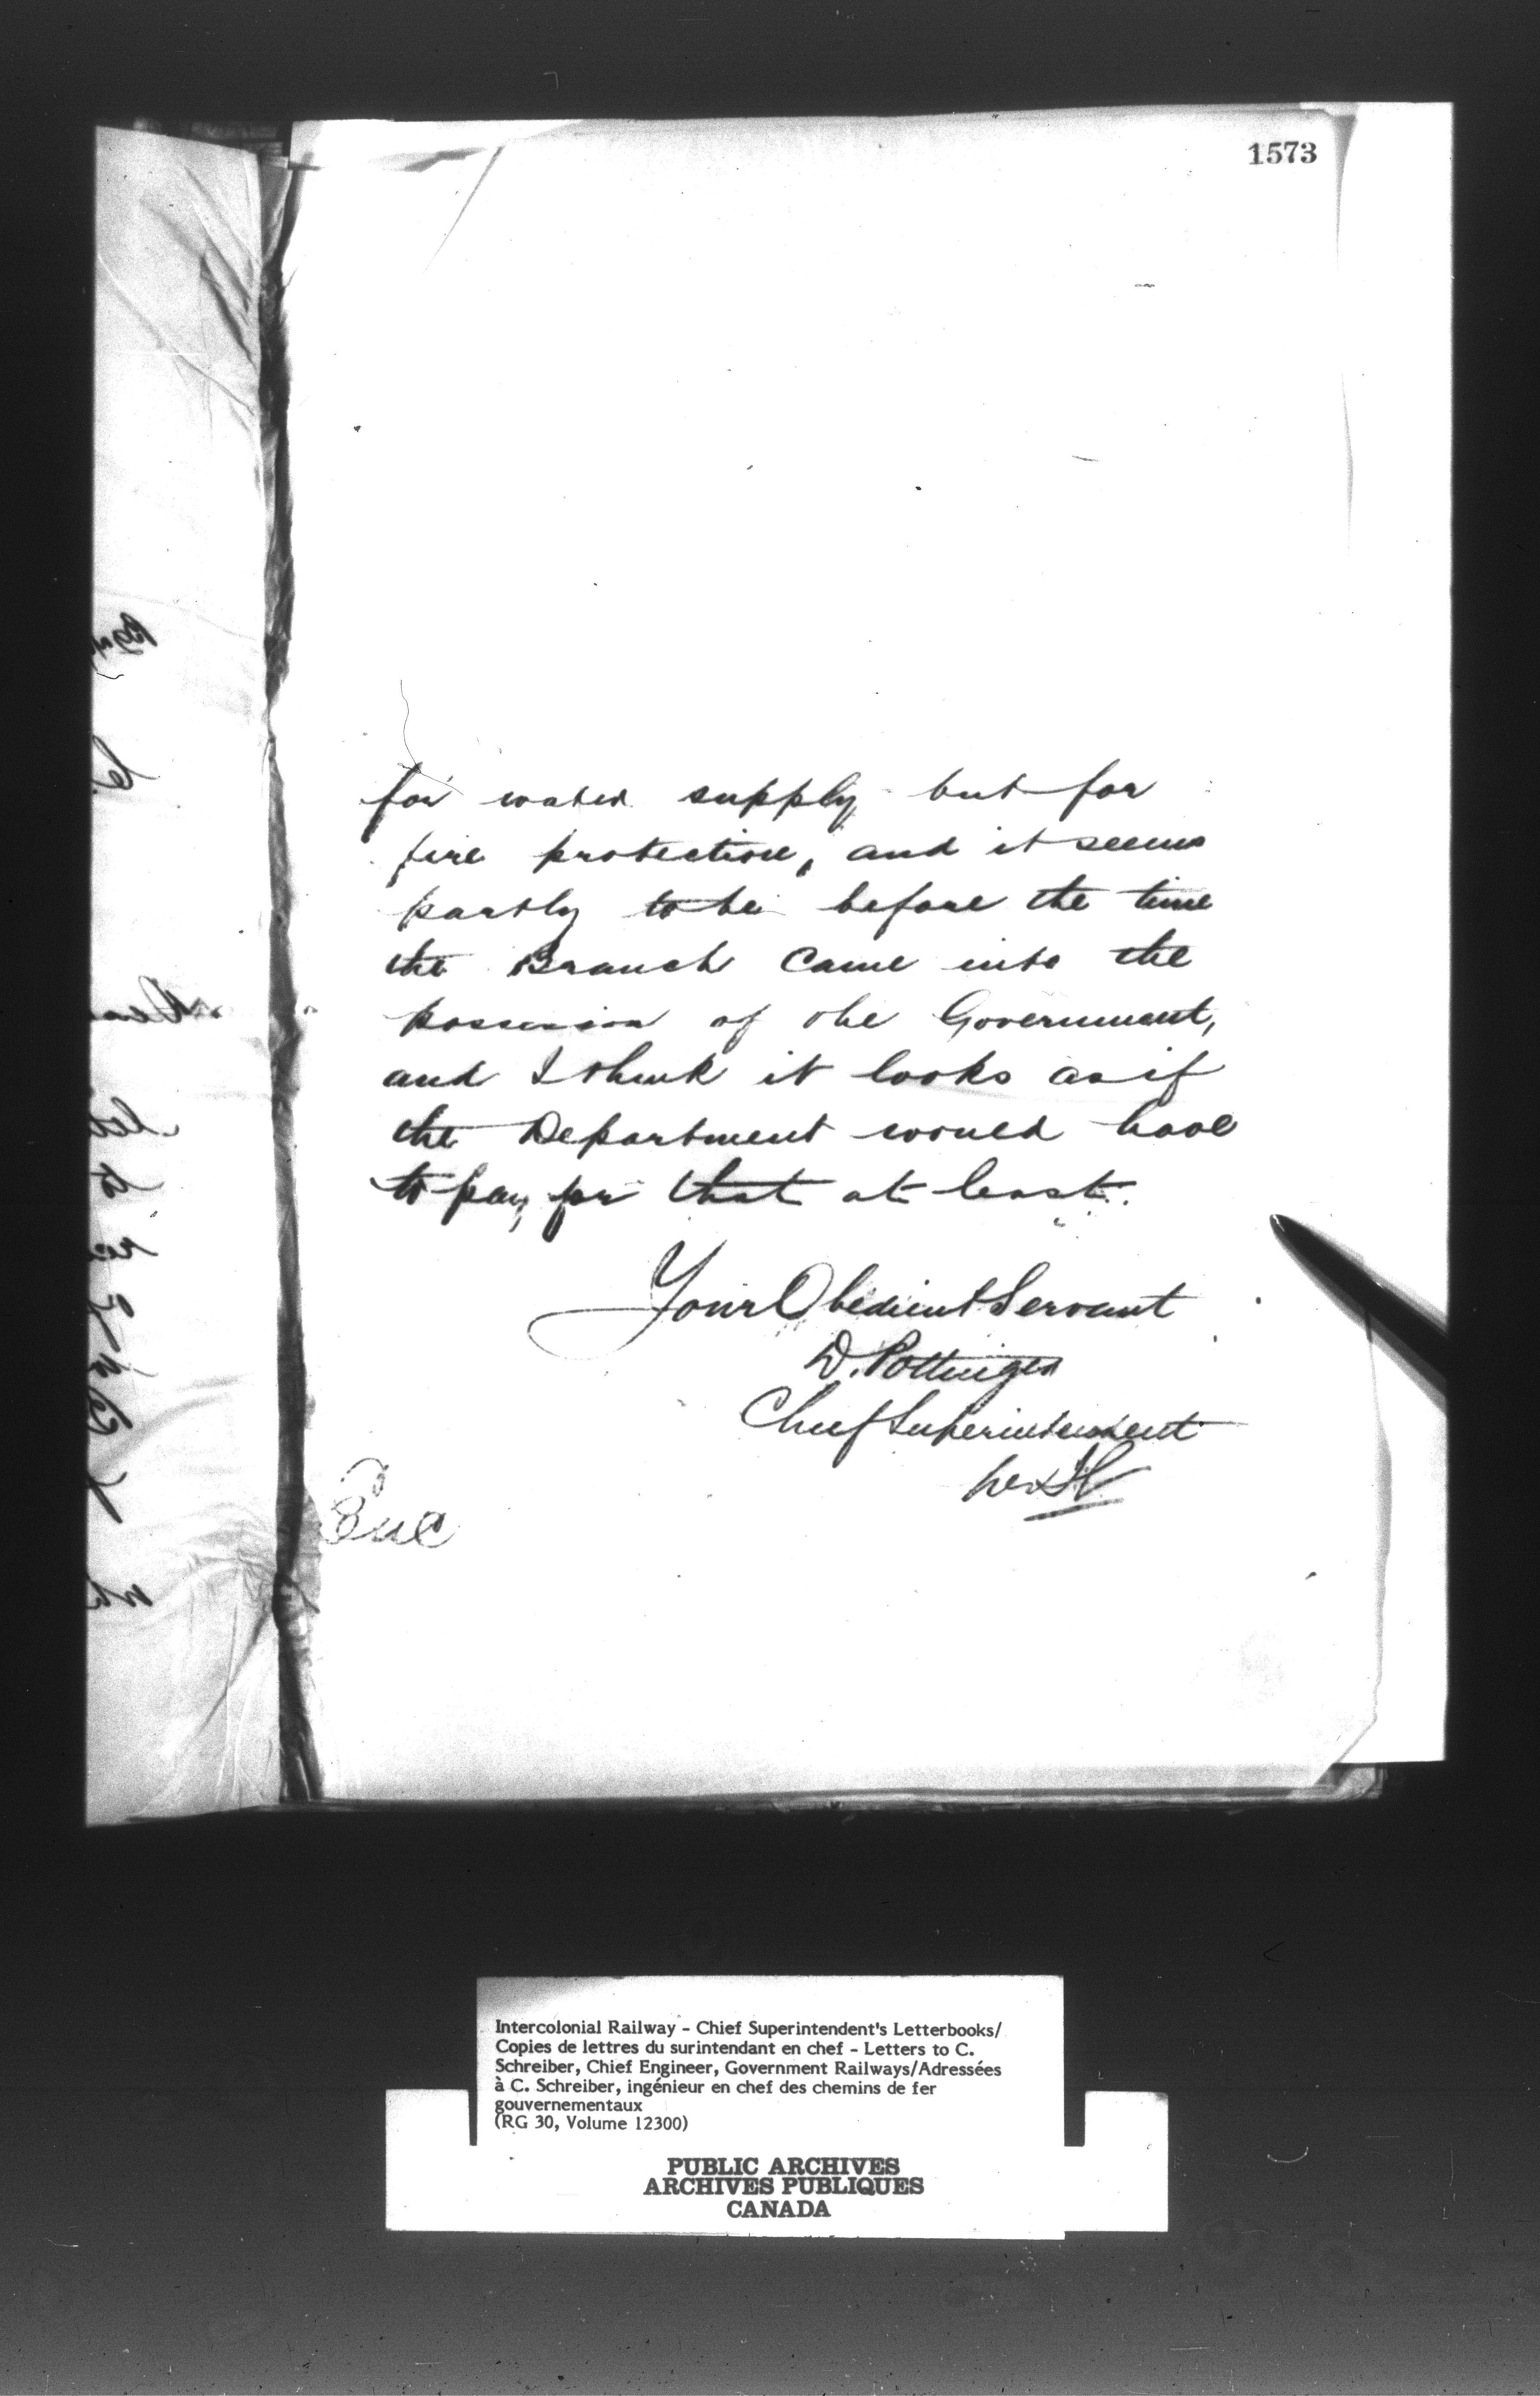 1573
for water supply but for
fire protection, and it seems
partly to be before the time
the Branch came into the
possession of the Government,
and I think it looks as if
the Department would have
to pay for that at least.
Your Obedient Servant
D. Pottinger
Chief Superintendent
per
Enc
Intercolonial Railway - Chief Superintendent's Letterbooks/
Copies de lettres du surintendant en chef - Letters to C.
Schreiber, Chief Engineer, Government Railways/Adressées
à C. Schreiber, ingénieur en chef des chemins de fer
gouvernementaux
(RG 30, Volume 12300)
PUBLIC ARCHIVES
ARCHIVES PUBLIQUES
CANADA